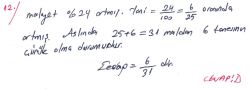 12.) maliyet %24 artmış. Yani = 24/100 = 6/25 oranında
artmış. Aslında 25+6=31 maldan 6 tanesinin
olma durumudur.
Cevap = 6/31 dir.
CEVAP: D